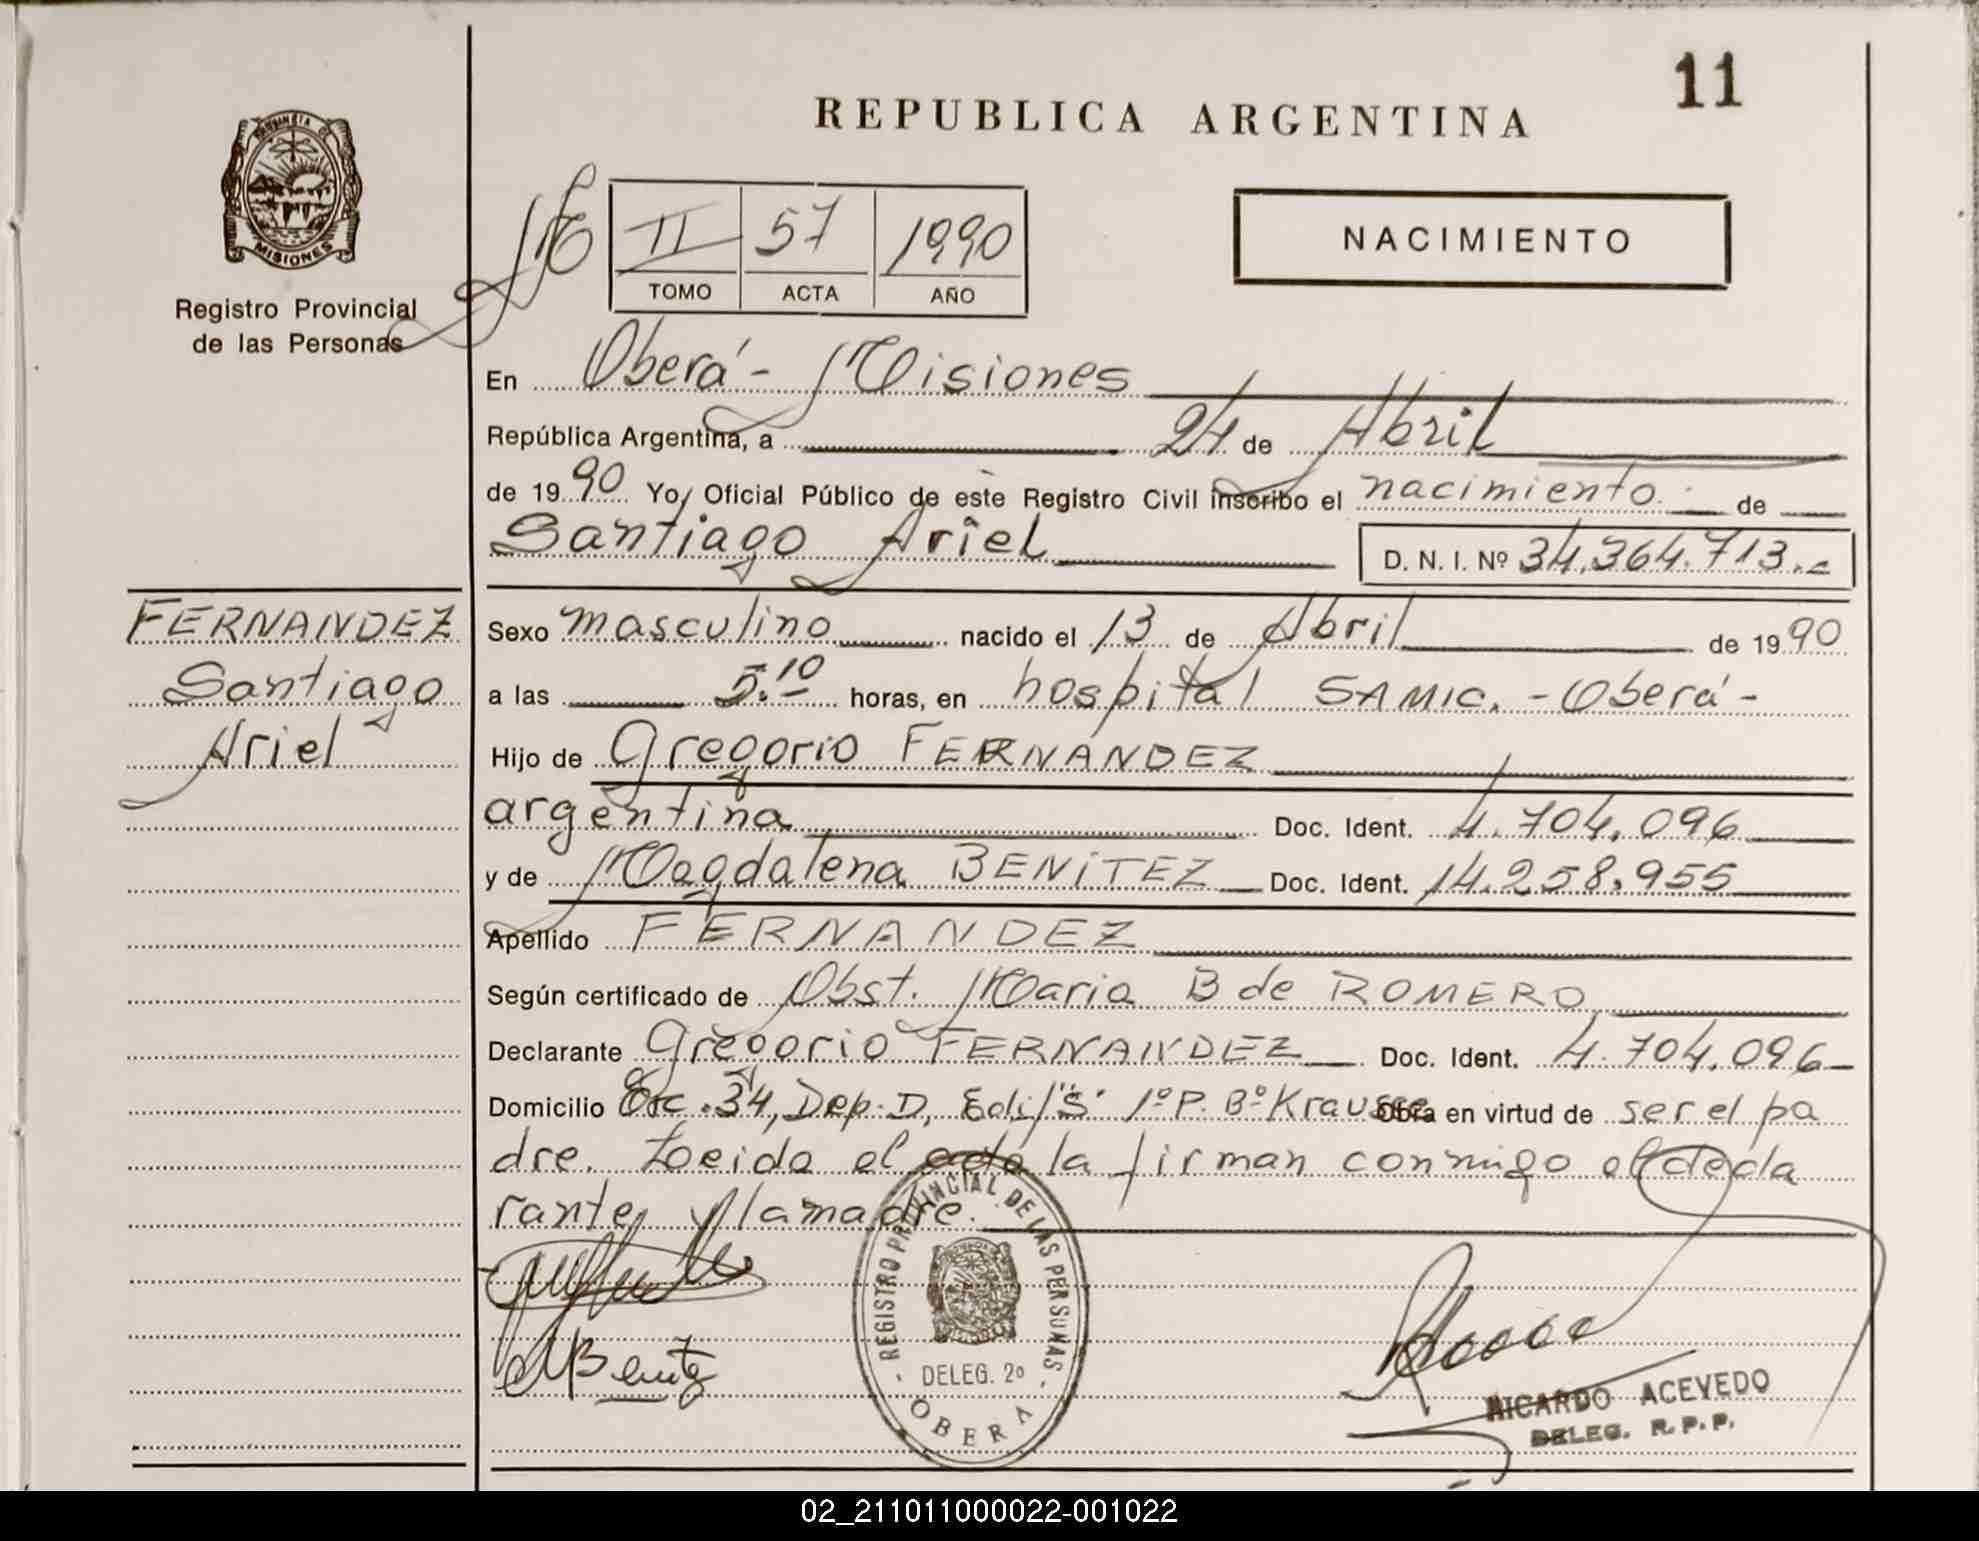 11
REPUBLICA ARGENTINA
PROVINCIA DE
MISIONES
Registro Provincial
de las Personas
II 57 1990
TOMO ACTA AÑO
NACIMIENTO
En Oberá - Misiones
República Argentina, a 24 de Abril
de 1990 Yo, Oficial Público de este Registro Civil inscribo el nacimiento de
Santiago Ariel D. N. I. Nº 34.364.713.-
FERNANDEZ
Santiago
Ariel
Sexo masculino nacido el 13 de Abril de 1990
a las 5.10 horas, en hospital SAMIC. - Oberá -
Hijo de Gregorio FERNANDEZ
argentina Doc. Ident. 4.704.096
y de Magdalena BENITEZ Doc. Ident. 14.258.955
Apellido FERNANDEZ
Según certificado de Obst. Maria B de ROMERO
Declarante Gregorio FERNANDEZ Doc. Ident. 4.704.096
Domicilio Esc. 34, Dep. D, Edif "S" 1º P. Bº Krausse Obra en virtud de ser el pa
dre. Leida el acta la firman conmigo el decla
rante y la madre.
REGISTRO PROVINCIAL DE LAS PERSONAS
DELEG. 2º
OBERA
MBenitez
RICARDO ACEVEDO
DELEG. R.P.P.
02_211011000022-001022